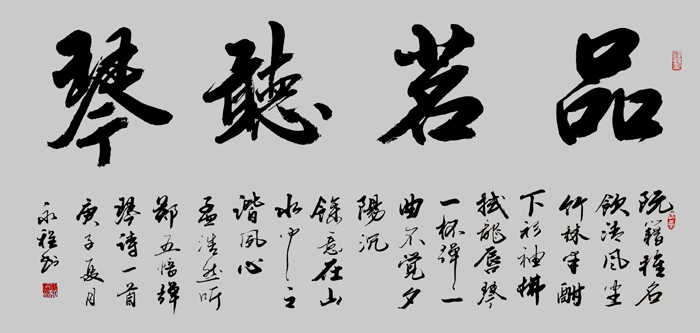 品茗聽琴
阮籍推名
飲清風坐
竹林半酣
下衫袖拂
拭龍唇琴
一杯彈一
曲不覺夕
陽沉
餘意在山
水聞之
諧夙心
孟浩然听
鄭五愔彈
琴詩一首
庚子夏月
永程书